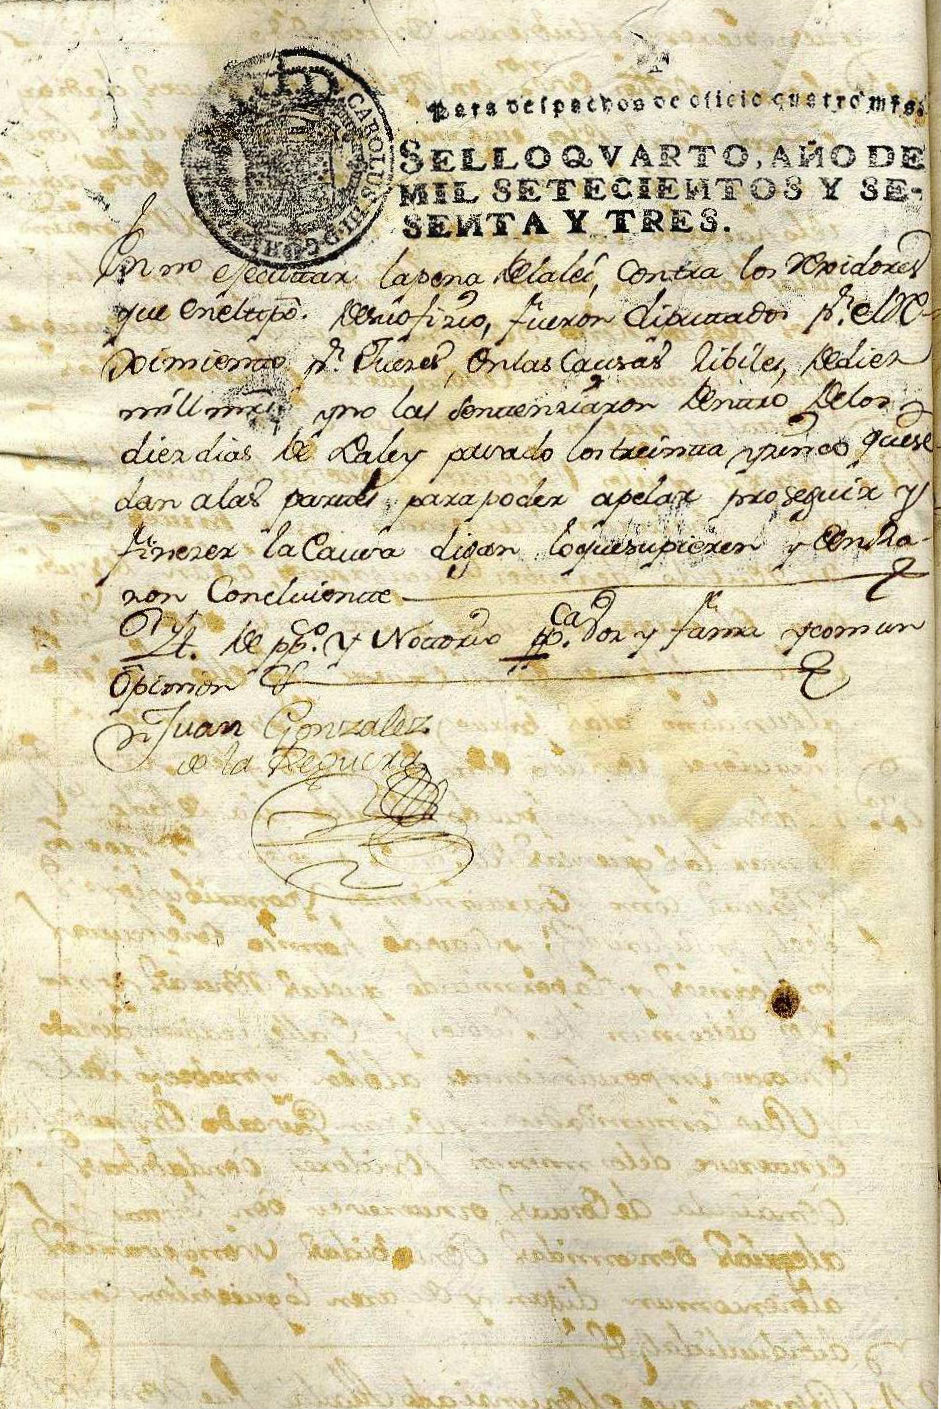 CAROLUS III D G HI
Para despachos de oficio quatro mrs.
SELLO QVARTO, AÑO DE
MIL SETECIENTOS Y SE-
SENTA Y TRES.
en no ejecuttar la pena de la lei, contra los Rexidores
que en el tpo. de su ofizio, fueron diputtados pr. el Re-
ximiento pr. Juezes, en las Causas Zibiles, de diez
mill mrs. y no las sentenziaron dentro de los
diez dias de la ley pasado los treinta y zinco que se
dan a las partes para poder apelar proseguir y
finezer la Causa digan lo que supieren y den Ra-
zon Concluiente
de ppco. y Nottorio pca. voz y fama y comun
Opinion &
Juan Gonzalez
de la Reguera